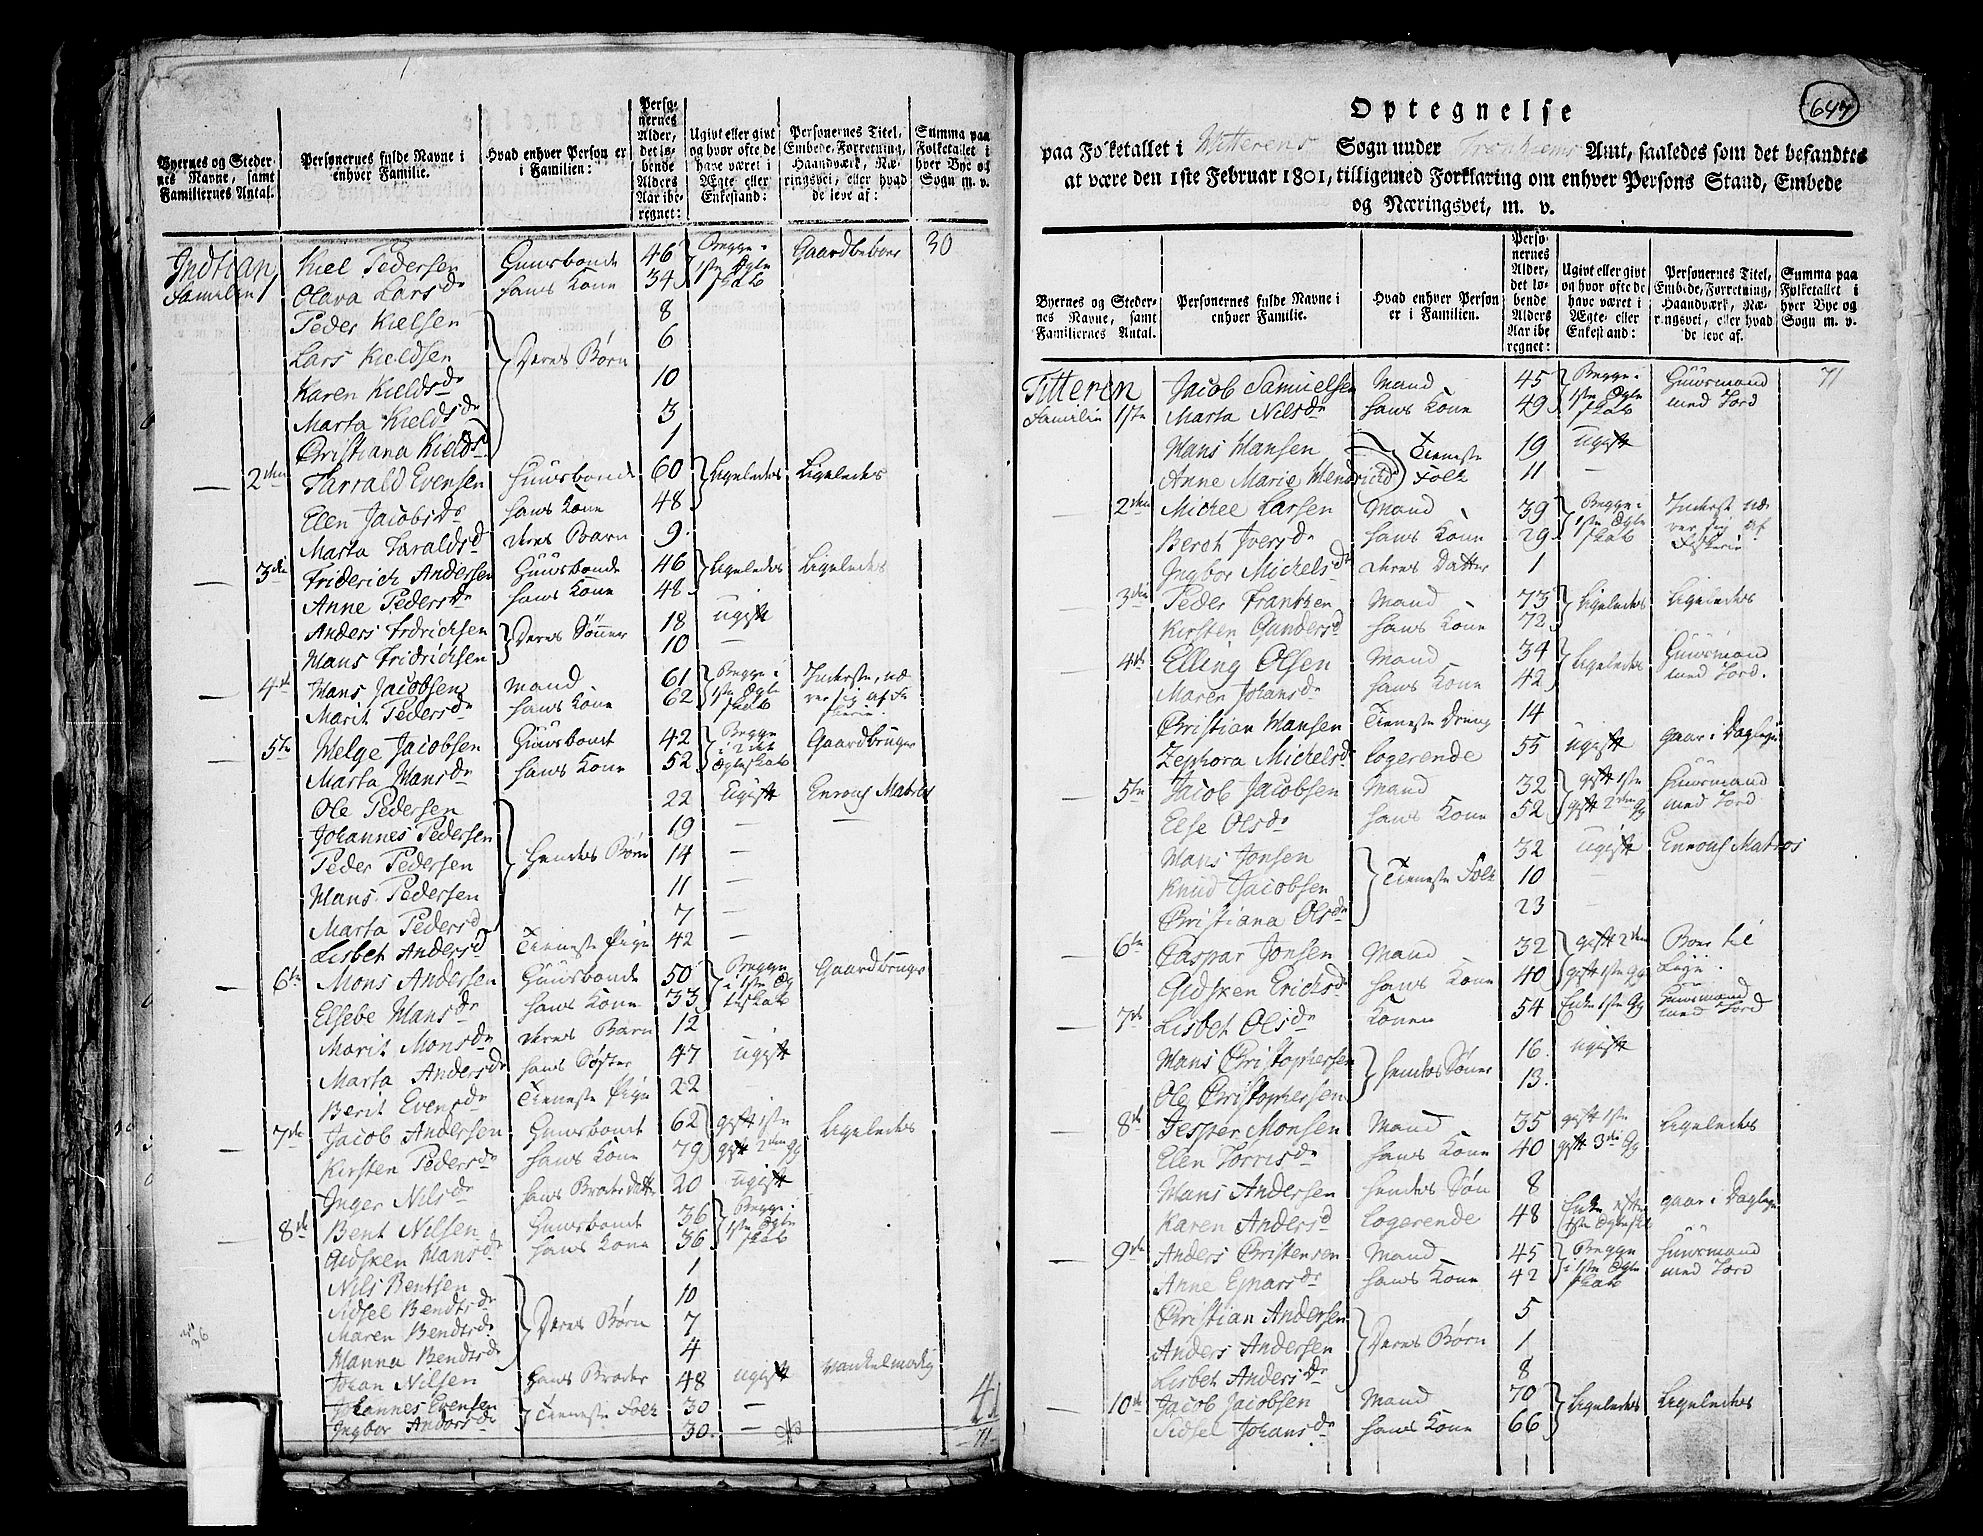 Byernes og Stedernes Navne, samt Familiernes Antal.
Personernes fulde Navne i enhver Familie.
Hvad enhver Person er i Familien:
Personernes Alder, det løbende Alders Aar iberegnet:
Ugivt eller givt og hvor ofte de have været i Ægte eller Enkestand:
Personernes Titel, Embede, Forretning, Haandværk, Næringsvei, eller hvad de leve af:
Summa paa Folketallet i hver Bye og Sogn m. v.
Indtian Kiel Pedersen Huusbonde 46 Begge i Gaardbeboer 30
Familie 1 Olava Larsdr hans Kone 34 1ste Ægteskab
Peder Kielsen 8
Lars Kieldsen Deres Børn 6
Karen Kieldsdr 10
Marta Kieldsdr 3
Christiana Kieldsd 1
2den Tarrald Evensen Huusbonde 60 Ligeledes Ligeledes
Elen Jacobsdr hans Kone 48
Marta Taraldsd deres Barn 9
3die Friderich Andersen Huusbonde 46 Ligeledes Ligeledes
Anne Pedersdr hans Kone 48
Anders Fridrichsen Deres Sønner 18 ugift
Hans Fridrichsen 10 —
4de Hans Jacobsen Mand 61 Begge i Inderste, næ
Marit Pedersdr hans Kone 62 1ste Ægteskab rer sig af Fiskerie
5te Helge Jacobsen Huusbond 42 Begge Gaardbruger
Marta Hansdr hans Kone 52 i 2det Ægteskab
Ole Pedersen 22 ugift Enroul Matros
Johannes Pedersen 19 — —
Peder Pedersen Hendes Børn 14 —
Hans Pedersen 11 —
Marta Pedersd 7 —
Lisbet Andersd Tieneste Pige 42 —
6te Mons Andersen Huusbonde 50 Begge Gaardbruger
Elsebe Hansdr hans Kone 33 i 1ste Ægteskab
Marit Monsdr deres Barn 12
Marta Andersdr hans Søster 47 ugift
Berit Evensdr Tieneste Pige 22
7de Jacob Andersen Huusbond 62 gift 1ste Ligeledes
Kirsten Pedersdr hans Kone 79 gift 2den Gg
Inger Nilsdr hans Broder Datter 20 ugift
8de Bent Nilsen Huusbond 36 Begge i
Gidsken Hansdr hans Kone 36 1ste Ægteskab
Nils Bentsen 1
Sidsel Bendtsdr Deres Børn 10
Maren Bendtsdr 7
Hanna Bendtsdr 4
Johan Nilsen hans Broder 48 ugift vankelmodig
Johannes Evensen Tieneste Folk 30 — 41
Ingbor Andersdr 30 — 71
647
Optegnelse
paa Folketallet i Hitterens Sogn under Tronhiems Amt, saaledes som det befandtes
at være den 1ste Februar 1801, tilligemed Forklaring om enhver Persons Stand, Embede
og Næringsvei, m. v.
Byernes og Stedernes Navne, samt Familiernes Antal.
Personernes fulde Navne i enhver Familie.
Hvad enhver Person er i Familien.
Personernes Alder, det løbende Alders Aar iberegnet:
Ugivt eller givt og hvor ofte de have været i Ægte eller Enkestand:
Personernes Titel, Embede, Forretning, Haandværk, Næringsvei, eller hvad de leve af.
Summa paa Folketallet i hver Bye og Sogn m. v.
Titteren Jacob Samuelsen Mand 45 Begge i Huusmand 71
Familie 1ste Marta Nilsdr hans Kone 49 1ste Ægteskab med Jord
Hans Hansen Tieneste 19 ugift
Anne Marie Hendrichsd Folk 11 —
2den Michel Larsen Mand 39 Begge i Inderst næ
Beroh Iversdr hans Kone 29 1ste Ægteskab rer sig af Fiskerie
Ingbor Michelsdr deres Datter 1
3die Peder Frantzen Mand 73 Ligeledes Ligeledes
Kirsten Gundersd hans Kone 72
4de Elling Olsen Mand 34 Ligeledes Huusmand
Maren Johansdr hans Kone 42 med Jord.
Christian Hansen Tieneste Dreng 14
Zephora Michelsdr Logerende 55 ugift gaar i Dagleje
5te Jacob Jacobsen Mand 32 gift 1ste Huusmand
Else Olsdr hans Kone 52 gift 2den Gg med Jord
Hans Jonsen 32 ugift Enroul Matros
Knud Jacobsen Tieneste Folk 10
Christiana Olsdr 23
6te Caspar Jonsen Mand 32 gift 2den Boer til
Gidsken Erichsdr hans Kone 40 gift 1ste Gg Leje
7de Lisbet Olsdr Konen 54 Enke 1ste Gg Huusmand med Jord
Hans Christophersen hendes Sønner 16 ugift
Ole Christophersen 13
8de Jesper Monsen Mand 35 gift 1ste Ligeledes
Elen Torrisdr hans Kone 40 gift 3die Gg
Hans Andersen hendes Søn 8
Karen Andersd Logerende 48 Enke efter 1ste Ægteskab gaar i Dagleje
9de Anders Christensen Mand 45 Begge Huusmand
Anne Ejnarsdr hans Kone 42 i 1ste Ægteskab med Jord
Christian Andersen 5
Anders Andersen Deres Børn 1
Lisbet Andersdr 8
10de Jacob Jacobsen Mand 70 Ligeledes Ligeledes
Sidsel Johansdr hans Kone 66